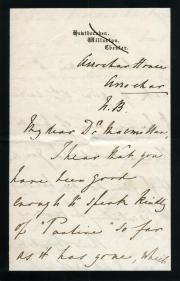 Hawthornden,
Willaston,
Chester.
Arrochar House
Arrochar
N.B
My dear Dr. Macmillan
I hear that you
have been good
enough to speak kindly
of "Pauline" so far
as it has gone, which